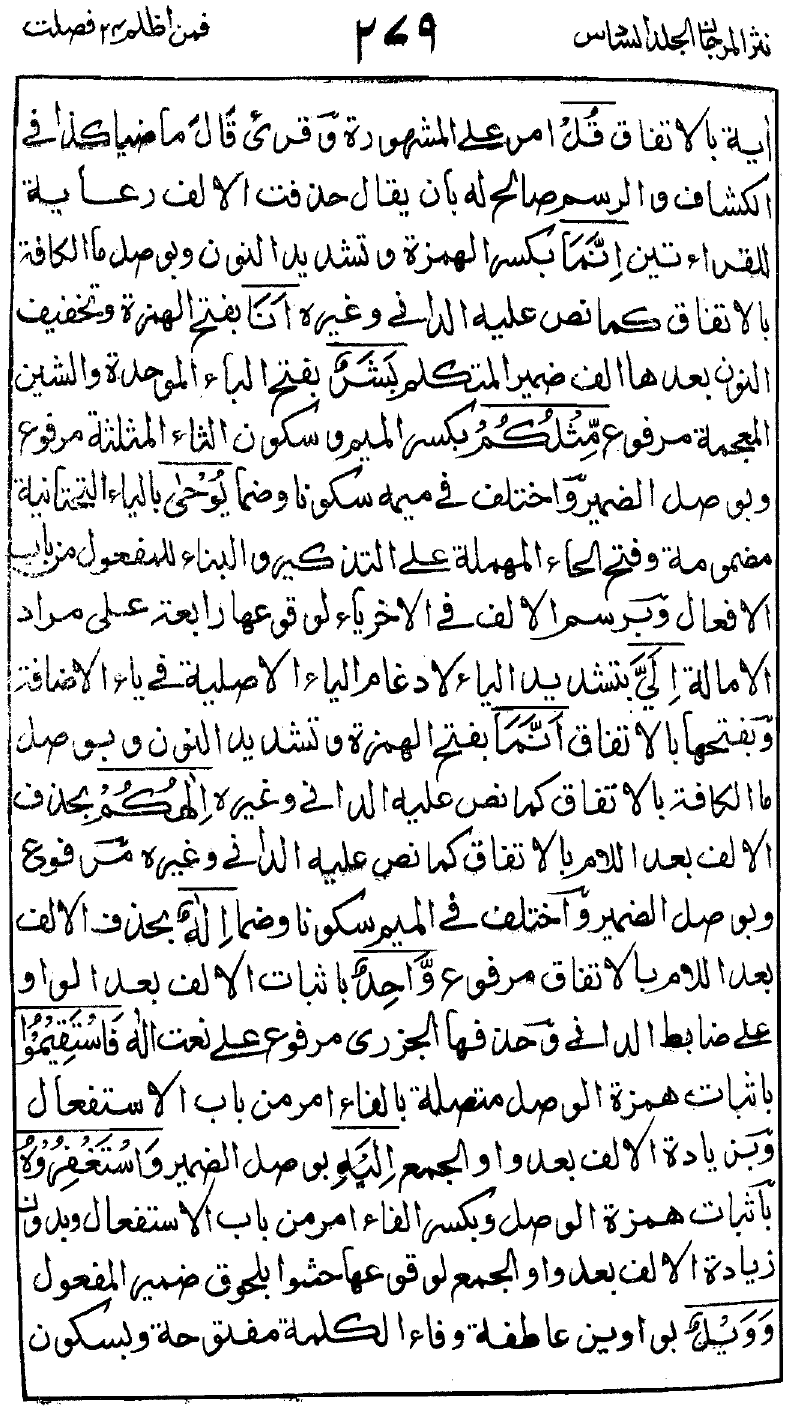 نثر المرجان الجلد السادس ٢٧٩ فمن اظلم ٢٤ فصلت
اية بالاتفاق قُلْ امر على المشهورة وّقرئ قَالَ ماضيا كذا في
الكشاف والرسم صالح له بأن يقال حذفت الالف رعاية
للقراءتين اِنَّمَا بكسر الهمزة وتشديد النون وبوصل ما الكافة
بالاتفاق كما نص عليه الداني وغيره اَنَا بفتح الهمزة وتخفيف
النون بعدها الف ضمير المتكلم بَشَرٌ بفتح الباء الموحدة والشين
المعجمة مرفوع مِّثْلُكُمْ بكسر الميم وسكون الثاء المثلثة مرفوع
وبوصل الضمير وّاختلف في ميمه سكونا وضما يُوْحٰى بالياء التحتانية
مضمومة وفتح الحاء المهملة على التذكير والبناء للمفعول من باب
الافعال وّبرسم الالف في الاخرياء لوقوعها رابعة على مراد
الامالة اِلَيَّ بتشديد الياء لادغام الياء الاصلية في ياء الاضافة
وّبفتحها بالاتفاق اَنَّمَا بفتح الهمزة وتشديد النون وبوصل
ما الكافة بالاتفاق كما نص عليه الداني وغيره اِلٰهُكُمْ بحذف
الالف بعد اللام بالاتفاق كما نص عليه الداني وغيره مّرفوع
وبوصل الضمير وّاختلف في الميم سكونا وضما اِلٰهٌ بحذف الالف
بعد اللام بالاتفاق مرفوع وَّاحِدٌ باثبات الالف بعد الواو
على ضابط الداني وّحذفها الجزرى مرفوع على نعت اله فَاسْتَقِيْمُوْا
باثبات همزة الوصل متصلة بالفاء امر من باب الاستفعال
وّبزيادة الالف بعد واو الجمع اِلَيْهِ بوصل الضمير وَاسْتَغْفِرُوْهُ
باثبات همزة الوصل وبكسر الفاء امر من باب الاستفعال وبدون
زيادة الالف بعد واو الجمع لوقوعها حشوا بلحوق ضمير المفعول
وَوَيْلٌ بواوين عاطفة وفاء الكلمة مفتوحة وبسكون